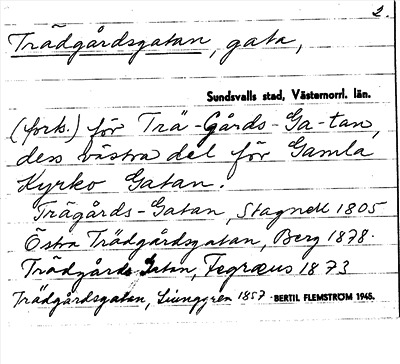 2.
Trädgårdsgatan, gata,
Sundsvalls stad, Västernorrl. län.
(förk.) för Trä-Gårds-Ga-tan,
dess västra del för Gamla
Kyrko Gatan.
Trägårds-Gatan, Stagnell 1805
Östra Trädgårdsgatan, Berg 1878.
Trädgårds Gatan, Fegræus 1873
Trädgårdsgatan, Ljunggren 1857. BERTIL FLEMSTRÖM 1945.